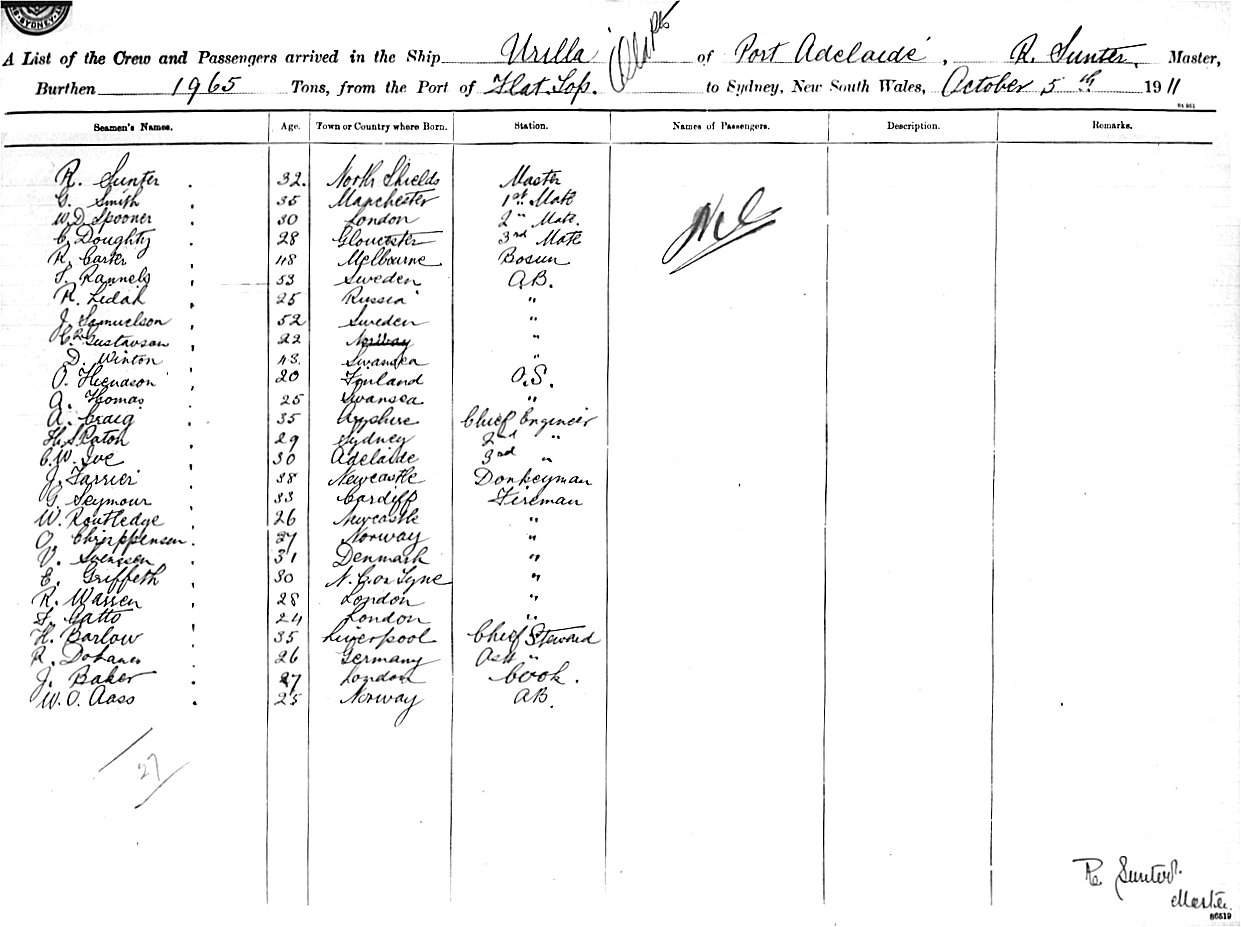 SYDNEY
A List of the Crew and Passengers arrived in the Ship Urilla of Port Adelaide, R. Sunter, Master,
Burthen 1965 Tons, from the Port of Flat Top. to Sydney, New South Wales, October 5th 1911
Seamen's Names. Age. Town or Country where Born. Station. Names of Passengers. Description. Remarks.
R. Sunter 32. North Shields Master
G. Smith 35 Manchester 1st Mate
W.D. Spooner 30 London 2" Mate. Nil
C. Doughty 28 Gloucester 3rd Mate
R. Carter 48 Melbourne Bosun
T. Rannels 53 Sweden A.B.
R. Ledah 25 Russia "
J. Samuelson 52 Sweden "
Gustavson 22 Norway "
D. Winton 43. Swansea "
O. 20 Finland O.S.
A. Thomas 25 Swansea "
A. Craig 35 Ayrshire Chief Engineer
H.S. Paton 29 Sydney 2nd "
C.W. Ive 30 Adelaide 3rd "
J. Farrier 38 Newcastle Donkeyman
G. Seymour 33 Cardiff Fireman
W. Routledge 26 Newcastle "
O. 27 Norway "
V. Svensen 31 Denmark "
E. Griffeth 30 N.C. on Tyne "
R. Warren 28 London "
F. Gatto 24 London "
H. Barlow 35 Liverpool Chief Steward
R. 26 Germany Asst "
J. Baker 27 London Cook.
W.O. Aass 25 Norway AB.
27
R. Sunter.
Master.
86519